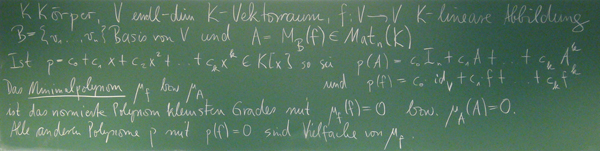 K Körper, V endl-dim K-Vektorraum, f: V → V K-lineare Abbildung
B = {v₁, ..., vₙ} Basis von V und A = M_B(f) ∈ Matₙ(K)
Ist p = c₀ + c₁x + c₂x² + ... + cₖxᵏ ∈ K[x] so sei p(A) = c₀Iₙ + c₁A + ... + cₖAᵏ
und p(f) = c₀·id_V + c₁f + ... + cₖfᵏ
Das Minimalpolynom μ_f bzw μ_A
ist das normierte Polynom kleinsten Grades mit μ_f(f) = 0 bzw. μ_A(A) = 0.
Alle anderen Polynome p mit p(f) = 0 sind Vielfache von μ_f.